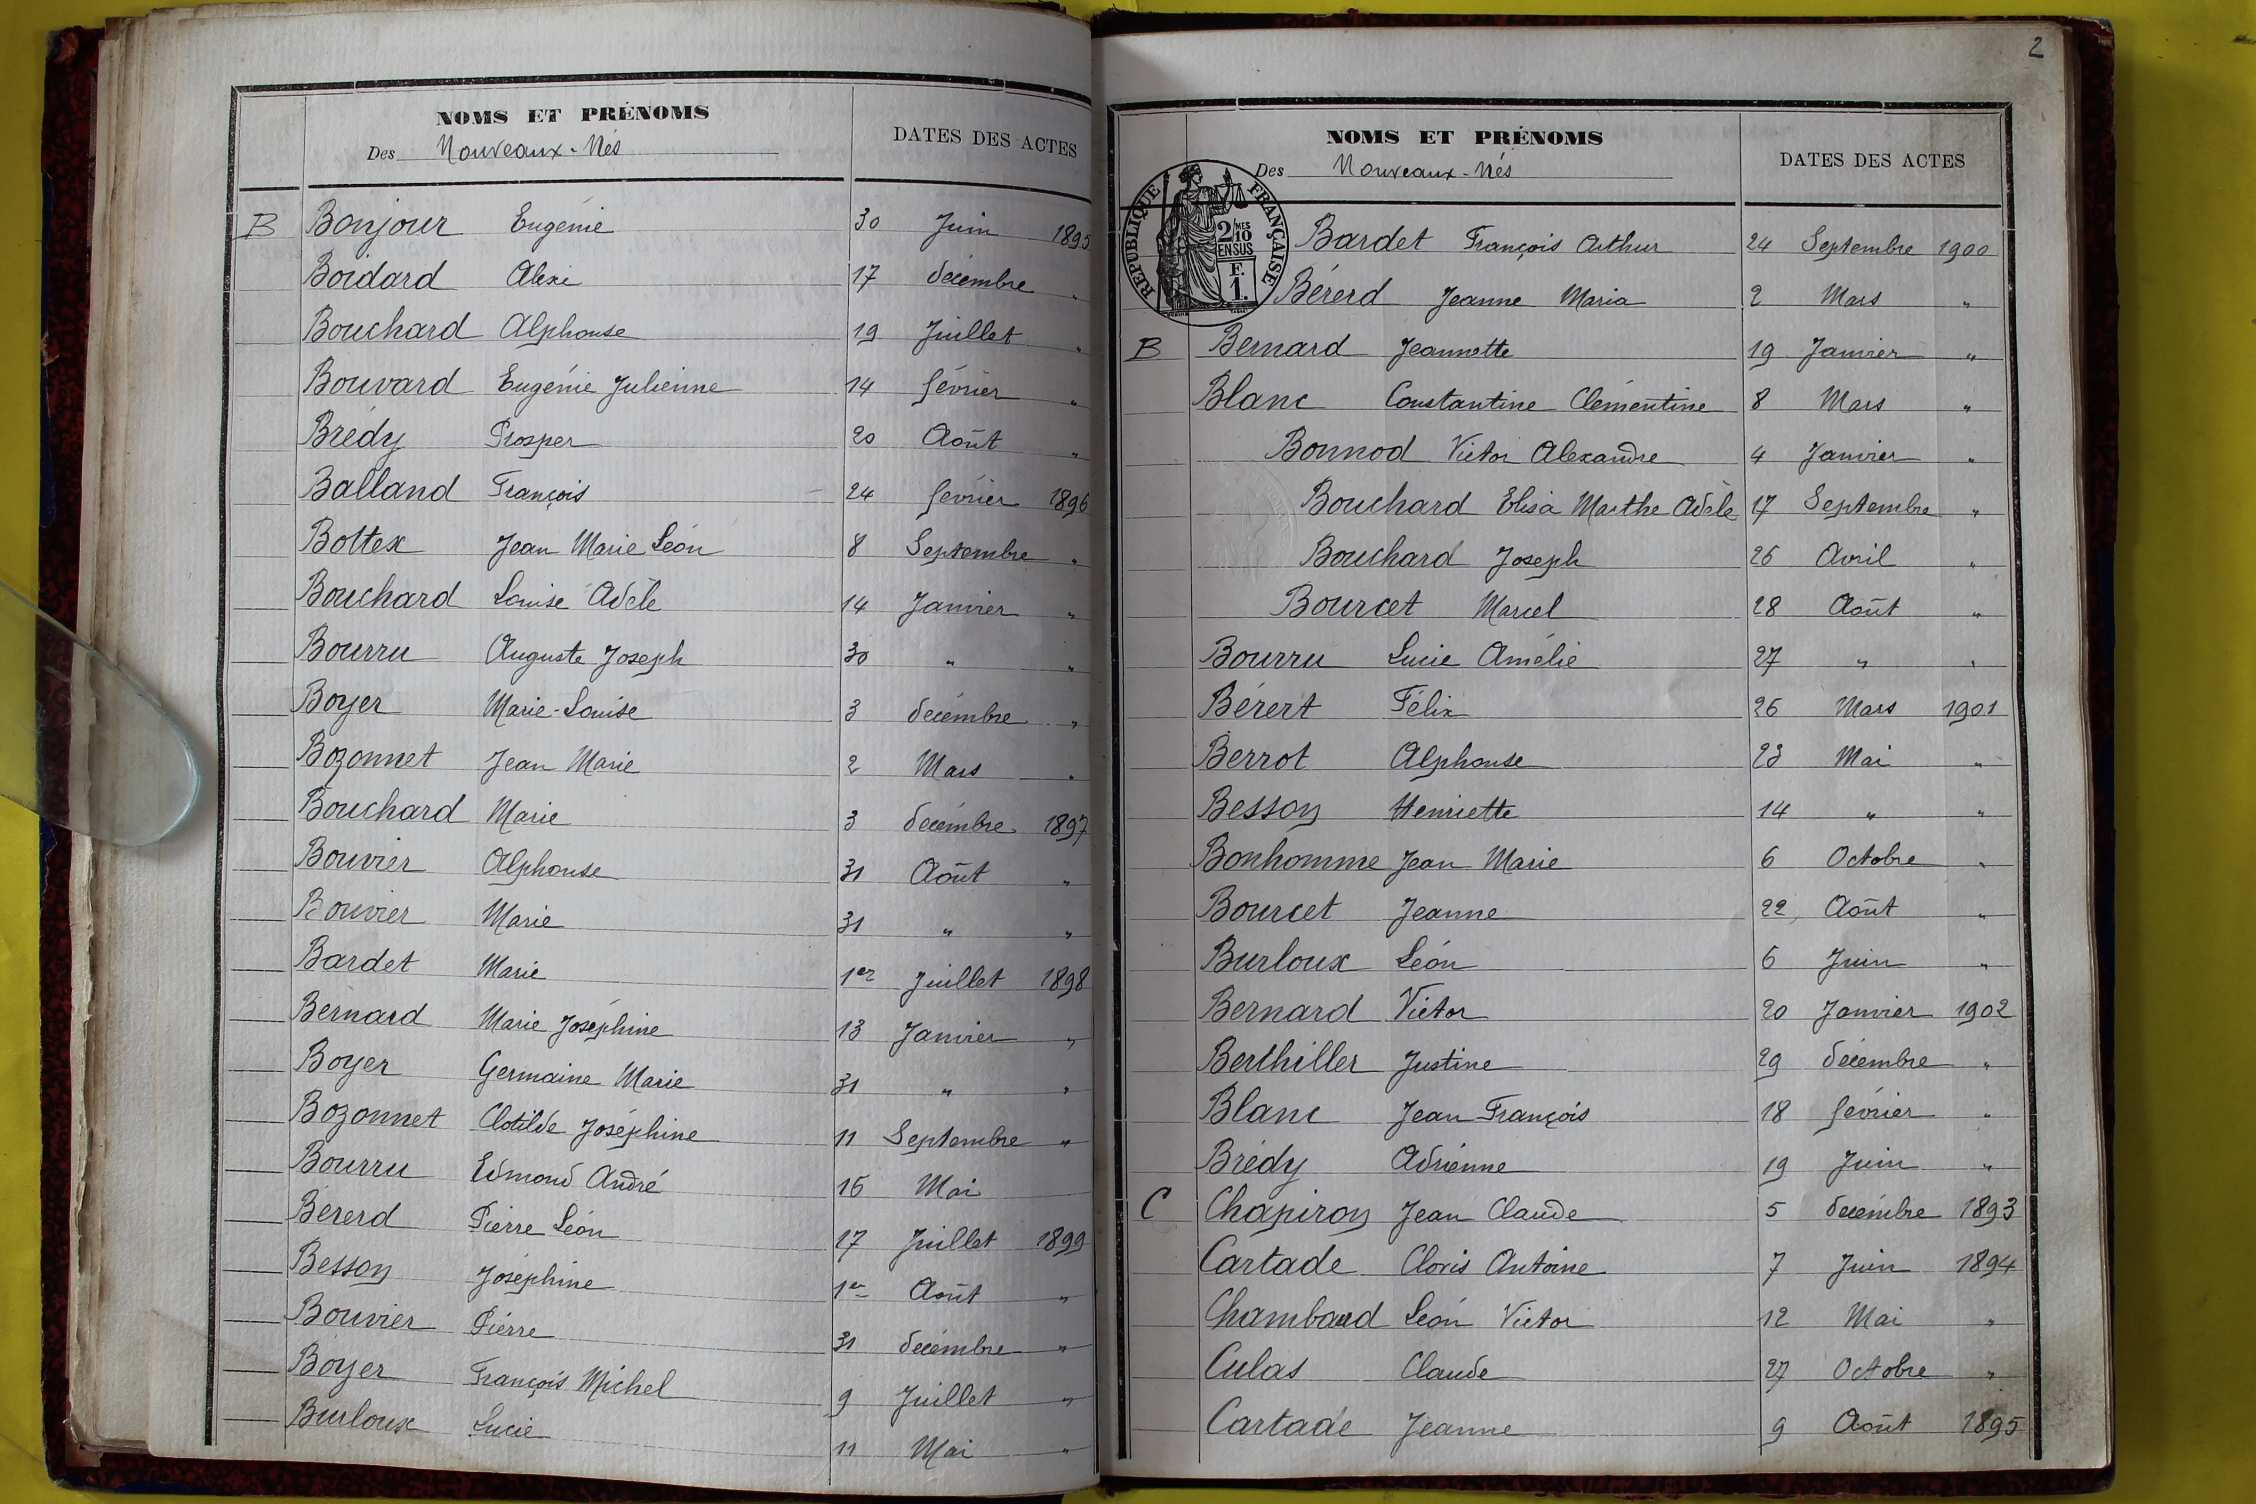 NOMS ET PRÉNOMS
Des Nouveaux-Nés
DATES DES ACTES
B Bonjour Eugénie 30 Juin 1895
Boidard Alexi 17 décembre "
Bouchard Alphonse 19 Juillet "
Bouvard Eugénie Julienne 14 février "
Brédy Prosper 20 Août "
Balland François 24 février 1896
Bottex Jean Marie Léon 8 Septembre "
Bouchard Louise Adèle 14 Janvier "
Bourru Auguste Joseph 30 " "
Boyer Marie-Louise 3 décembre "
Bozonnet Jean Marie 2 Mars "
Bouchard Marie 3 décembre 1897
Bouvier Alphonse 31 Août "
Bouvier Marie 31 " "
Bardet Marie 1er Juillet 1898
Bernard Marie Joséphine 13 Janvier "
Boyer Germaine Marie 31 " "
Bozonnet Clotilde Joséphine 11 Septembre "
Bourru Edmond André 16 Mai
Bérerd Pierre Léon 17 Juillet 1899
Besson Joséphine 1er Août "
Bouvier Pierre 31 décembre "
Boyer François Michel 9 Juillet "
Burloux Lucie 11 Mai "
2
NOMS ET PRÉNOMS
Des Nouveaux-Nés
DATES DES ACTES
RÉPUBLIQUE FRANÇAISE
2/10 MES
EN SUS
F.
1.
Bardet François Arthur 24 Septembre 1900
Bérerd Jeanne Maria 2 Mars "
B Bernard Jeannette 19 Janvier "
Blanc Constantine Clémentine 8 Mars "
Bonnod Victor Alexandre 4 Janvier "
Bouchard Elisa Marthe Adèle 17 Septembre "
Bouchard Joseph 26 Avril "
Bourcet Marcel 28 Août "
Bourru Lucie Amélie 27 " "
Bérert Félix 26 Mars 1901
Berrot Alphonse 23 Mai "
Besson Henriette 14 " "
Bonhomme Jean Marie 6 Octobre "
Bourcet Jeanne 22 Août "
Burloux Léon 6 Juin "
Bernard Victor 20 Janvier 1902
Berthiller Justine 29 décembre "
Blanc Jean François 18 février "
Brédy Adrienne 19 Juin "
C Chapiron Jean Claude 5 décembre 1893
Cartade Cloris Antoine 7 Juin 1894
Chambaud Léon Victor 12 Mai "
Culas Claude 27 Octobre "
Cartade Jeanne 9 Août 1895